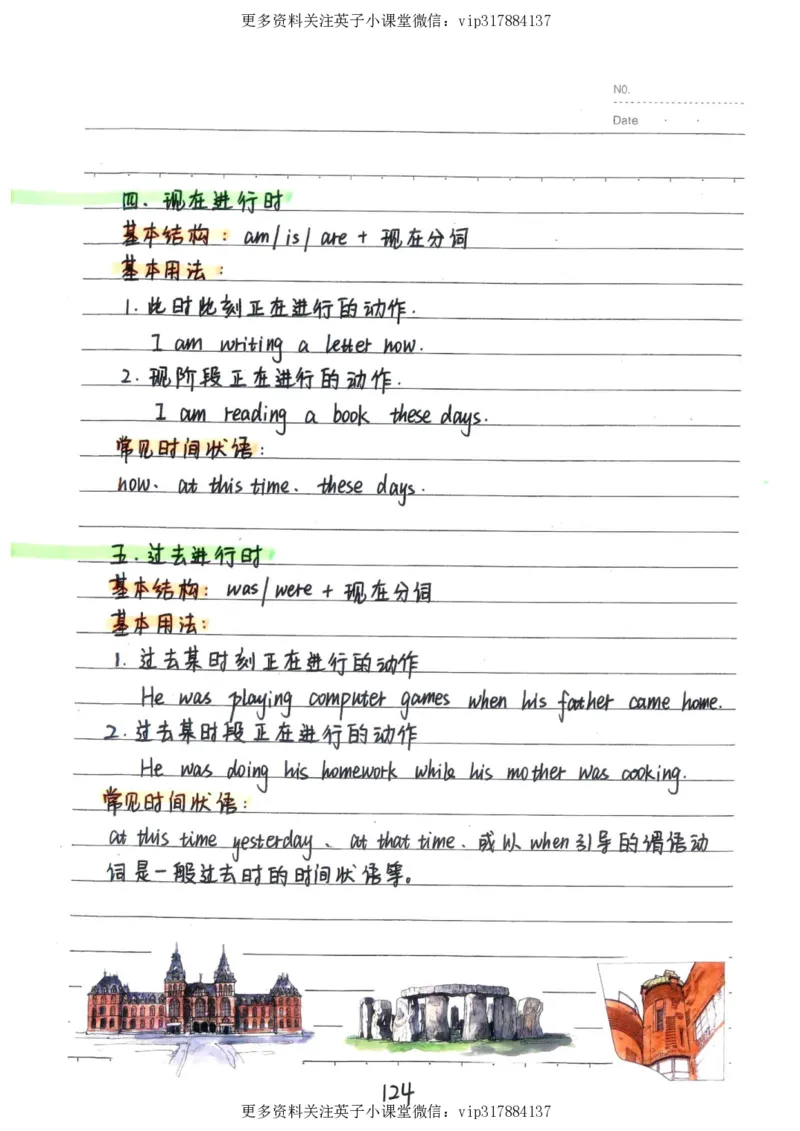 更多资料关注英子小课堂微信：vip317884137
NO.
Date
四、现在进行时
基本结构：am/is/are + 现在分词
基本用法：
1. 此时此刻正在进行的动作.
I am writing a letter now.
2. 现阶段正在进行的动作.
I am reading a book these days.
常见时间状语：
now、at this time、these days.
五、过去进行时
基本结构：was/were + 现在分词
基本用法：
1. 过去某时刻正在进行的动作
He was playing computer games when his father came home.
2. 过去某时段正在进行的动作
He was doing his homework while his mother was cooking.
常见时间状语：
at this time yesterday、at that time、或以when引导的谓语动
词是一般过去时的时间状语等。
124
更多资料关注英子小课堂微信：vip317884137